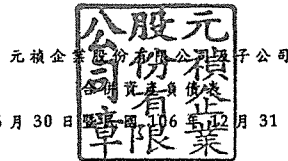 元禎企業股份有限公司及子公司
合併資產負債表
月 30 日暨民國 106 年 12 月 31
元禎企業
股份有限
公司章